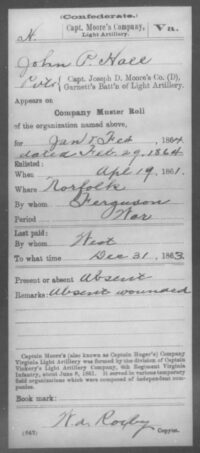 (Confederate.)
H.
Capt. Moore's Company,
Light Artillery.
Va.
John P. Hall
Pvt, Capt. Joseph D. Moore's Co. (D),
Garnett's Batt'n of Light Artillery.
Appears on
Company Muster Roll
of the organization named above,
for Jan & Feb, 1864
dated Feb. 29, 1864
Enlisted:
When Apl 19, 1861.
Where Norfolk
By whom Ferguson
Period War
Last paid:
By whom West
To what time Dec 31, 1863.
Present or absent Absent
Remarks: Absent wounded
Captain Moore's (also known as Captain Huger's) Company
Virginia Light Artillery was formed by the division of Captain
Vickery's Light Artillery Company, 6th Regiment Virginia
Infantry, about June 8, 1861. It served in various temporary
field organizations which were composed of independent companies.
Book mark:
Wa. Rosby
(642)
Copyist.